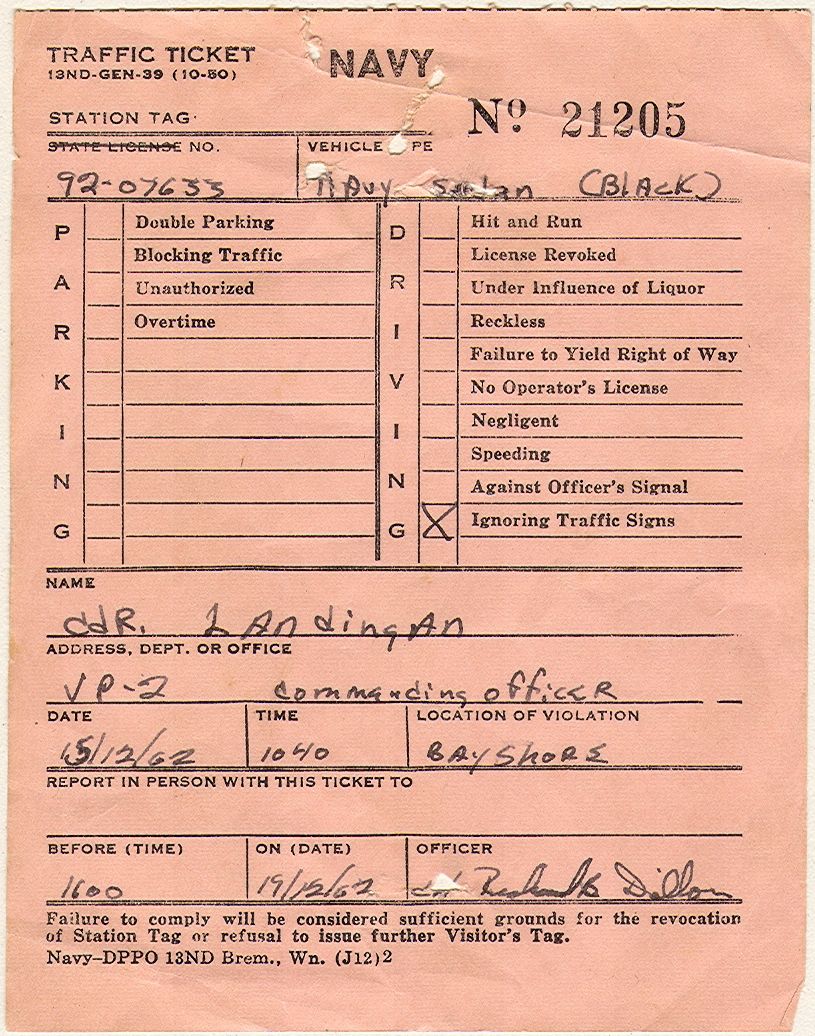 TRAFFIC TICKET
13ND-GEN-39 (10-50)
NAVY
STATION TAG
Nº 21205
STATE LICENSE NO.
VEHICLE PE
92-07633
NAVY Sedan (BLACK)
PARKING
Double Parking
Blocking Traffic
Unauthorized
Overtime
DRIVING
Hit and Run
License Revoked
Under Influence of Liquor
Reckless
Failure to Yield Right of Way
No Operator's License
Negligent
Speeding
Against Officer's Signal
X Ignoring Traffic Signs
NAME
CdR. LAndingAn
ADDRESS, DEPT. OR OFFICE
VP-2 Commanding officeR
DATE
TIME
LOCATION OF VIOLATION
15/12/62
1040
BAYSHORE
REPORT IN PERSON WITH THIS TICKET TO
BEFORE (TIME)
ON (DATE)
OFFICER
1600
19/12/62
Richard B Dillon
Failure to comply will be considered sufficient grounds for the revocation
of Station Tag or refusal to issue further Visitor's Tag.
Navy–DPPO 13ND Brem., Wn. (J12)2